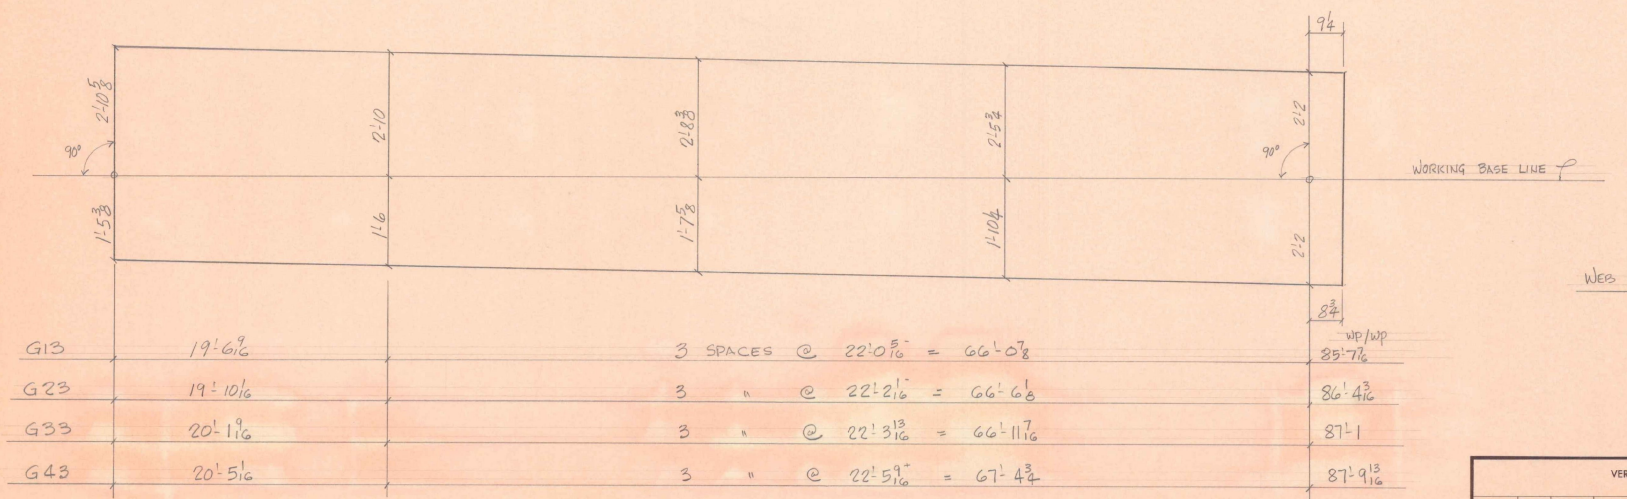 9¼
2'-10⅝ 2'-10 2'-8⅜ 2'-5¾ 2'-2
90° 90°
WORKING BASE LINE
1'-5⅜ 1'-6 1'-7⅝ 1'-10¼ 2'-2
WEB
8¾
WP/WP
G13 19'-6 9/16 3 SPACES @ 22'-0 5/16- = 66'-0⅞ 85'-7 7/16
G23 19'-10 1/16 3 " @ 22'-2 1/16- = 66'-6⅛ 86'-4 3/16
G33 20'-1 9/16 3 " @ 22'-3 13/16 = 66'-11 7/16 87'-1
G43 20'-5 1/16 3 " @ 22'-5 9/16+ = 67'-4¾ 87'-9 13/16
VER